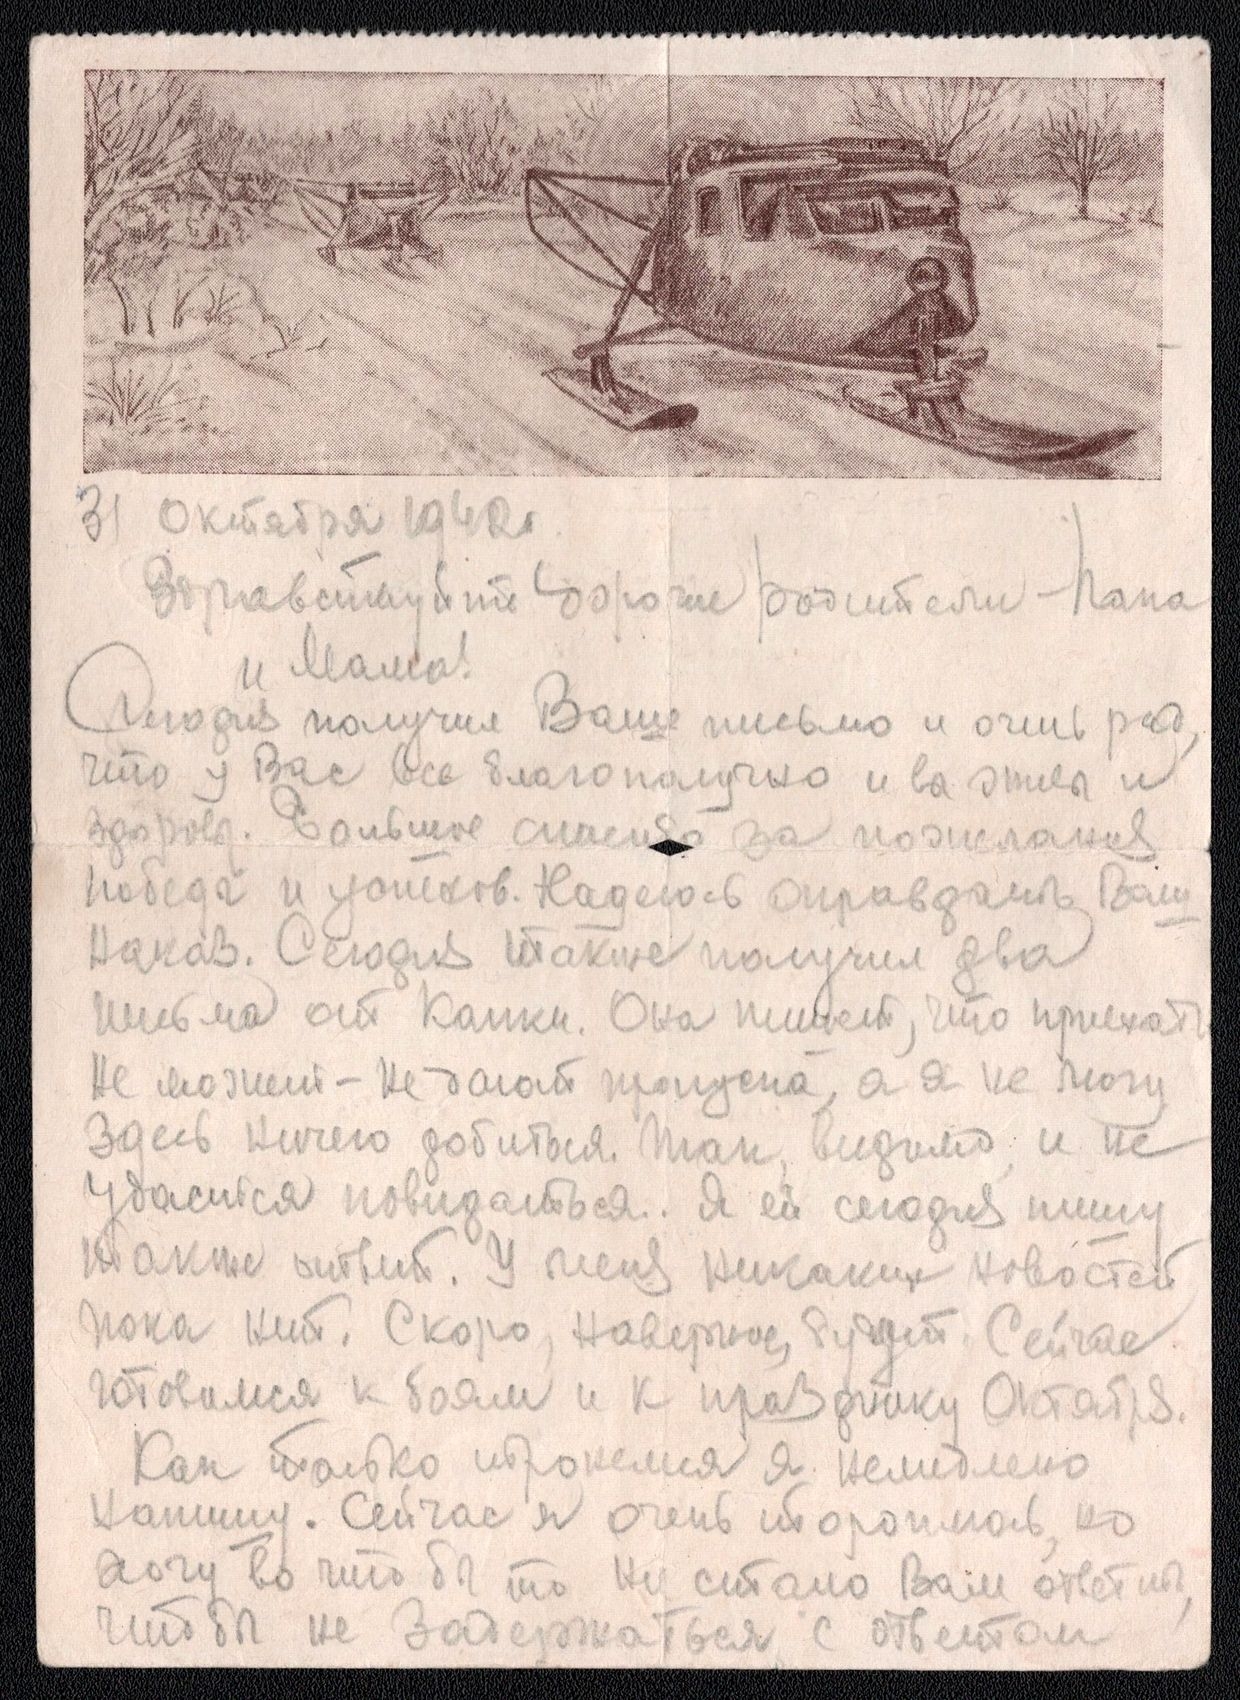 31 Октября 1942г.
Здравствуйте дорогие родители - Папа
и Мама!
Сегодня получил Ваше письмо и очень рад,
что у Вас все благополучно и вы живы и
здоровы. Большое спасибо за пожелания
победы и успехов. Надеюсь оправдать Ваш
наказ. Сегодня также получил два
письма от Капки. Она пишет, что приехать
не может - не дают пропуска, а я не могу
здесь ничего добиться. Так, видимо, и не
удастся повидаться. Я ей сегодня пишу
также ответ. У меня никаких новостей
пока нет. Скоро, наверное, будут. Сейчас
готовимся к боям и к празднику Октября.
Как только тронемся я немедлено
напишу. Сейчас я очень тороплюсь, но
хочу во что бы то ни стало Вам ответить,
чтобы не задержаться с ответом